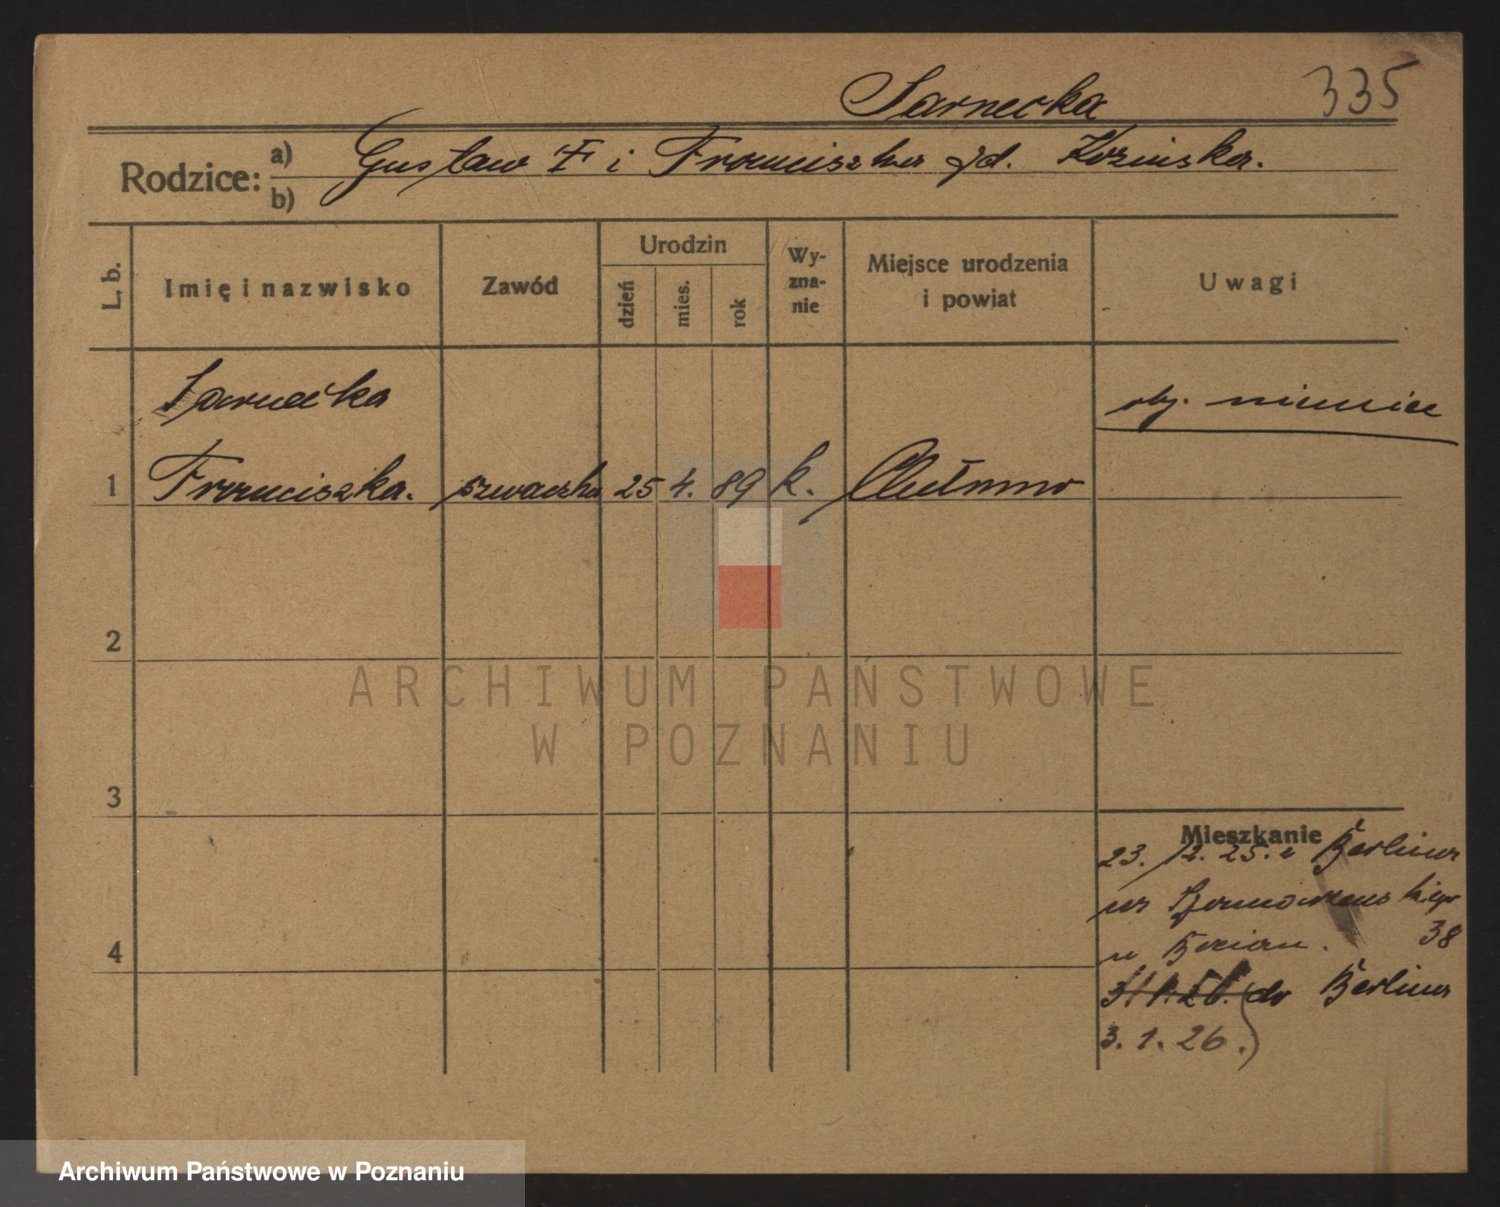 Sarnecka
335
Rodzice:
a)
b)
Gustaw i Franciszka zd. Kozinska.
L. b.
Imię i nazwisko
Zawód
Urodzin
dzień
mies.
rok
Wy-
zna-
nie
Miejsce urodzenia
i powiat
Uwagi
Sarnecka
1 Franciszka. szwaczka 25 4. 89 k. Chełmno
oby. niemiec
2
3
4
Mieszkanie
23. 12. 25. z Berlina
na
38
u
31.1.26. do Berlina
3. 1. 26.)
ARCHIWUM PAŃSTWOWE
W POZNANIU
Archiwum Państwowe w Poznaniu